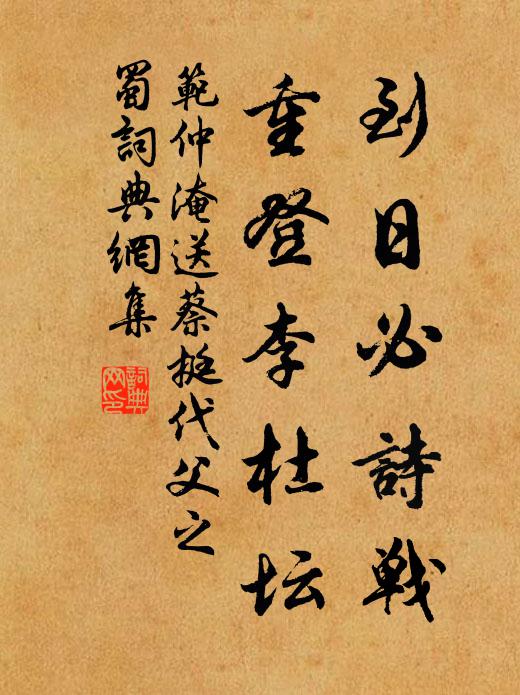 到日必詩戰
重登李杜坛
範仲淹送蔡挺代父之
蜀詞典網集
詞典網印